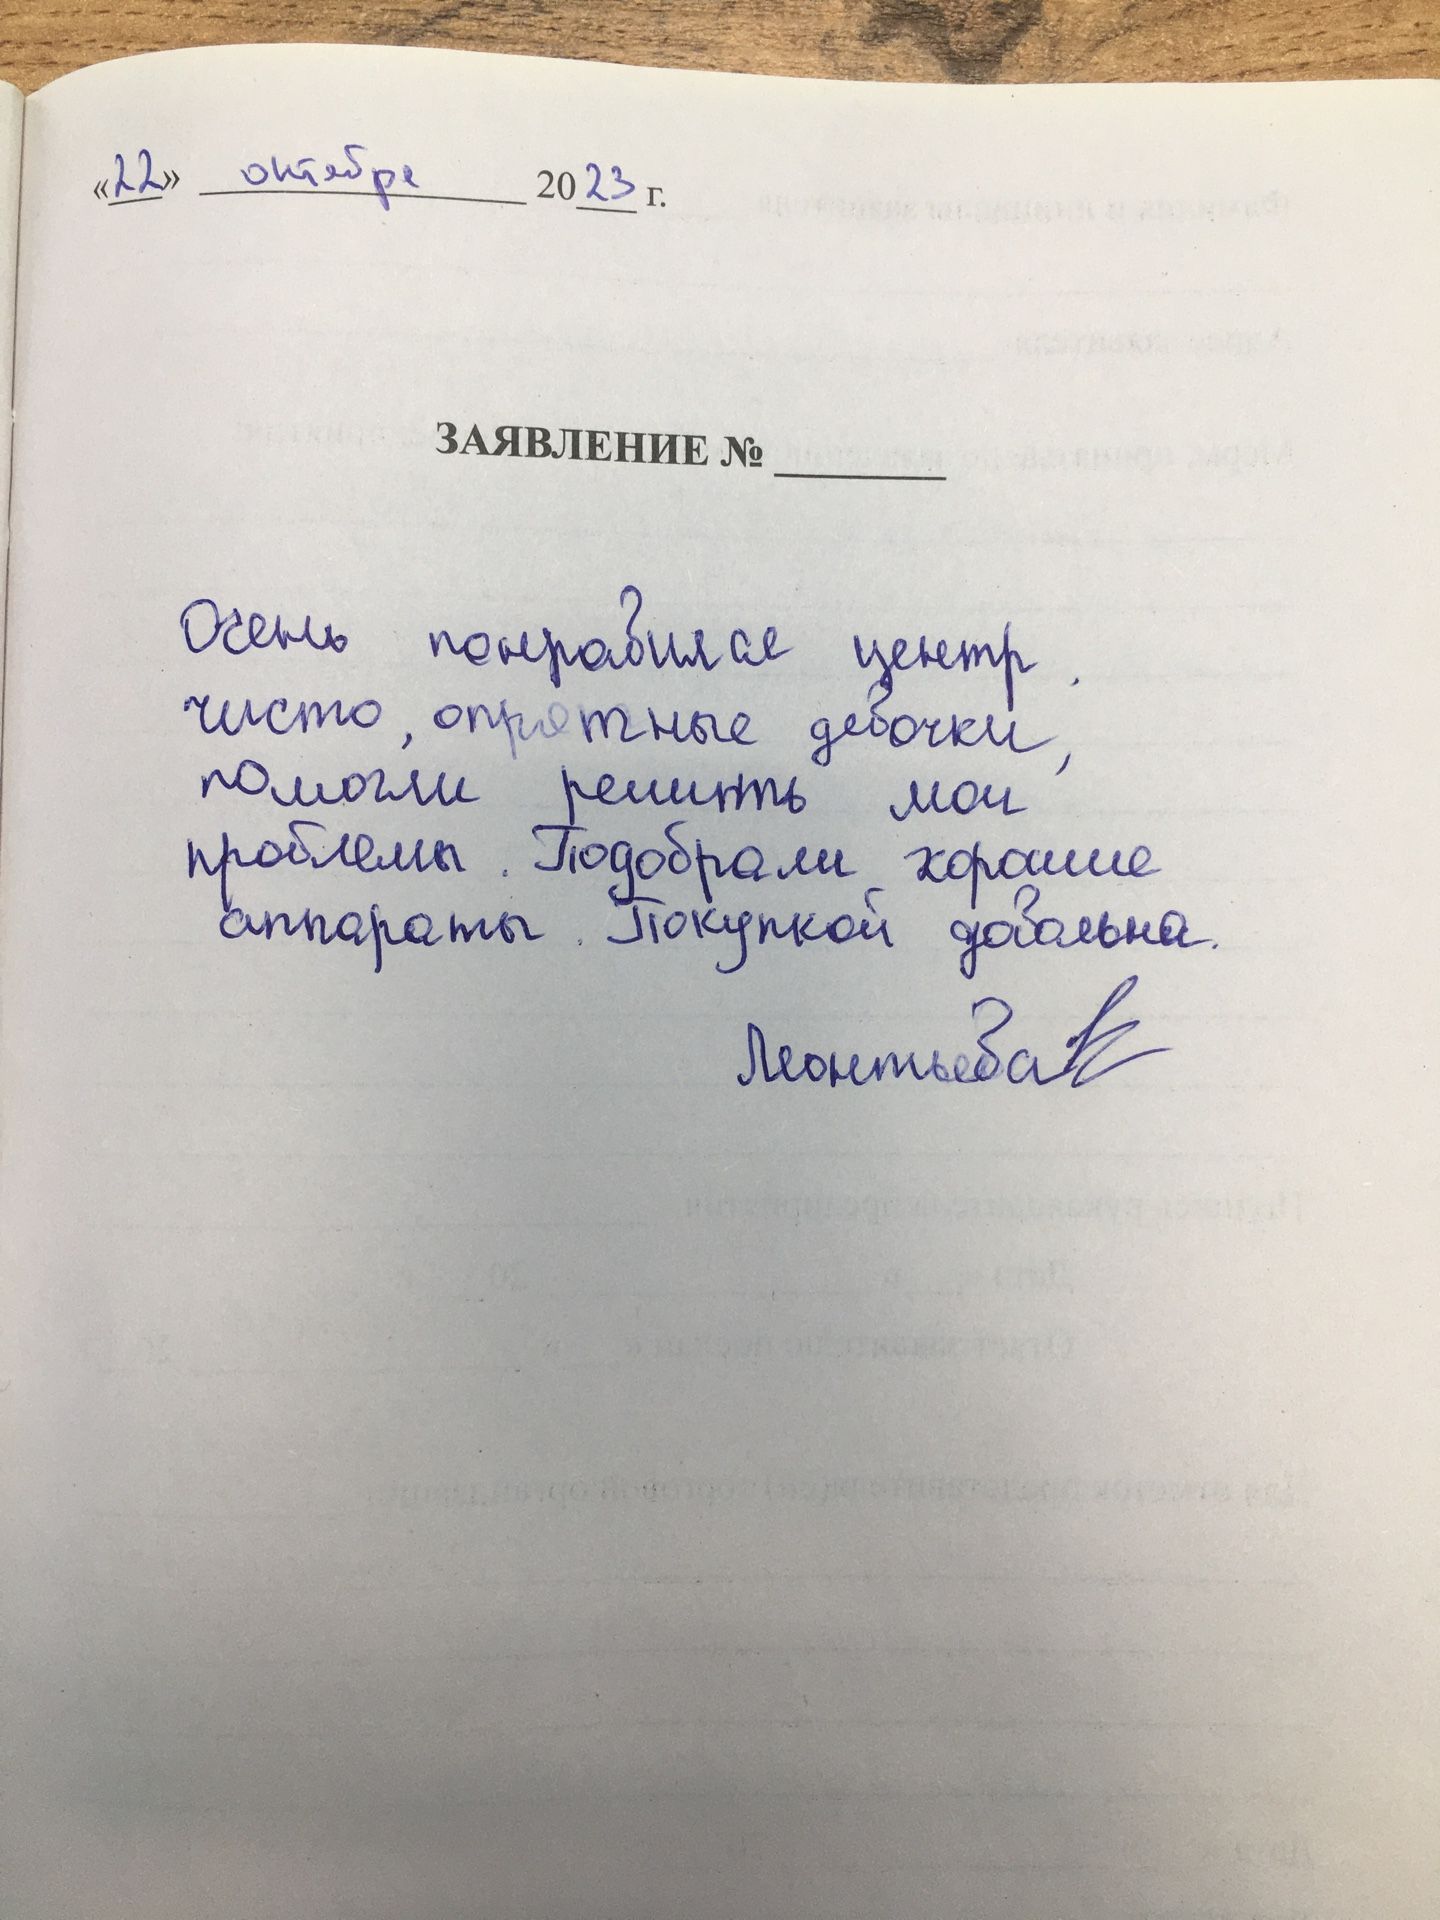 «22» октября 2023 г.
ЗАЯВЛЕНИЕ № ______
Очень понравился центр.
чисто, опрятные девочки,
помогли решить мои
проблемы. Подобрали хорошие
аппараты. Покупкой довольна.
Леонтьева